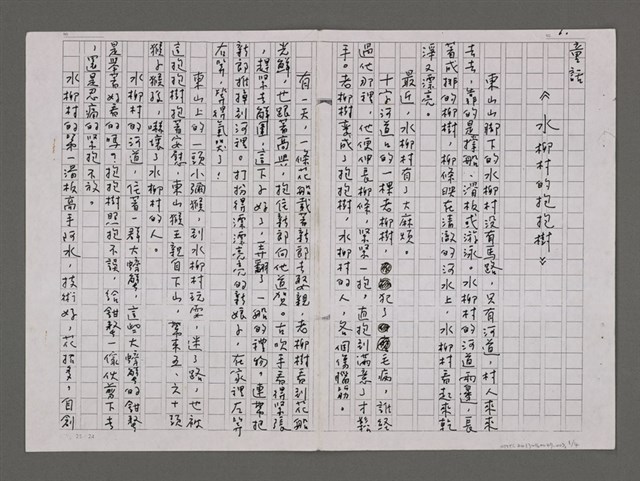 童話
《水柳村的抱抱樹》
東山山腳下的水柳村沒有馬路，只有河道，村人來來
去去，靠的是撐船、滑板或游泳。水柳村的河道兩邊，長
著成排的柳樹，柳條映在清澈的河水上，水柳村看起來乾
淨又漂亮。
最近，水柳村有了大麻煩。
十字河道口的一棵老柳樹，犯了毛病，誰經
過他那裡，他便伸長柳條，緊緊一抱，直抱到滿意了才鬆
手。老柳樹變成了抱抱樹，水柳村的人，各個傷腦筋。
有一天，一條花船載著新郎去娶親，老柳樹看到花船
光鮮，也跟著高興，抱住新郎向他道賀。古吹手看得緊張
，趕緊去解圍，這下子好了，弄翻了一船的禮物。連帶把
新郎推掉到河裡。打扮得漂漂亮亮的新娘子，在家裡左等
右等，等得氣哭了！
東山上的一頭小獼猴，到水柳村玩耍，迷了路，也被
這抱抱樹抱著安慰，東山猴王親自下山，帶來五、六十頭
猴子猴孫，嚇壞了水柳村的人。
水柳村的河道，住著一群大螃蟹，這些大螃蟹的鉗螯
是舉著好看的嗎？抱抱樹照抱不誤，給鉗螯一傢伙剪下去
，還是忍痛的緊抱不放。
水柳村的第一滑板高手阿水，技術好，花招多，自創